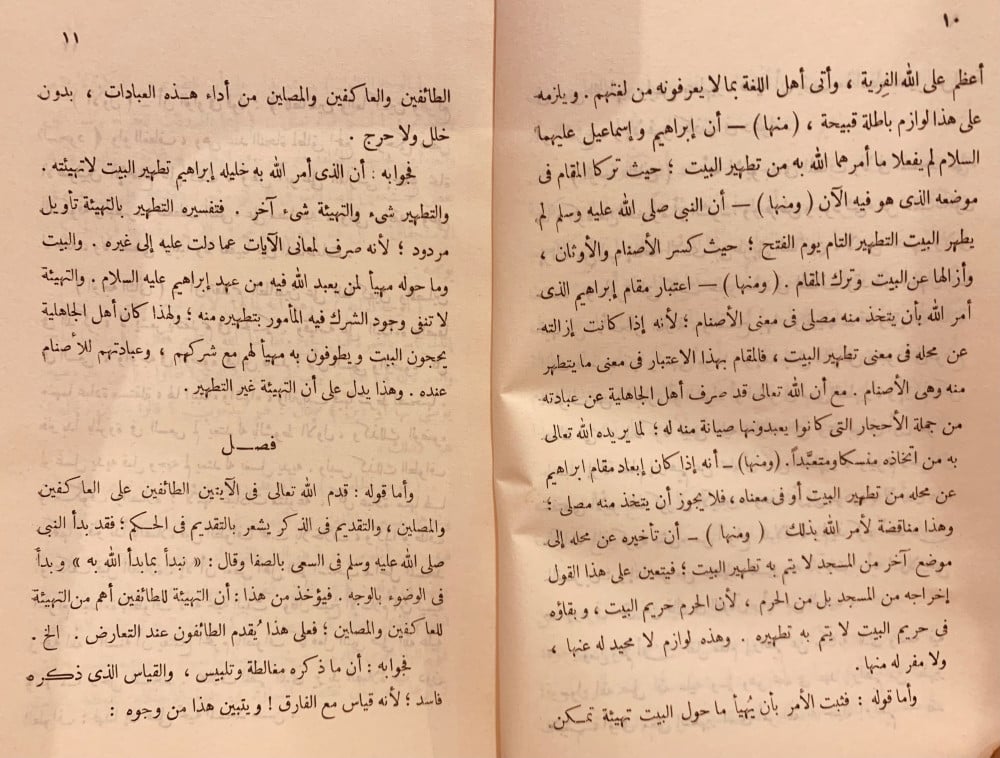 ١٠
أعظم على الله الفِرية ، وأتى أهل اللغة بما لا يعرفونه من لغتهم . ويلزمه
على هذا لوازم باطلة قبيحة ، (منها) — أن إبراهيم وإسماعيل عليهما
السلام لم يفعلا ما أمرهما الله به من تطهير البيت ؛ حيث تركا المقام فى
موضعه الذى هو فيه الآن (ومنها) — أن النبى صلى الله عليه وسلم لم
يطهر البيت التطهير التام يوم الفتح ؛ حيث كسر الأصنام والأوثان ،
وأزالها عن البيت وترك المقام . (ومنها) — اعتبار مقام إبراهيم الذى
أمر الله بأن يتخذ منه مصلى فى معنى الأصنام ؛ لأنه إذا كانت إزالته
عن محله فى معنى تطهير البيت ، فالمقام بهذا الاعتبار فى معنى ما يتطهر
منه وهى الأصنام . مع أن الله تعالى قد صرف أهل الجاهلية عن عبادته
من جملة الأحجار التى كانوا يعبدونها صيانة منه له ؛ لما يريده الله تعالى
به من اتخاذه منسكا ومتعبَّداً . (ومنها) — أنه إذا كان إبعاد مقام ابراهيم
عن محله من تطهير البيت أو فى معناه ، فلا يجوز أن يتخذ منه مصلى ؛
وهذا مناقضة لأمر الله بذلك ( ومنها ) — أن تأخيره عن محله إلى
موضع آخر من المسجد لا يتم به تطهير البيت ؛ فيتعين على هذا القول
إخراجه من المسجد بل من الحرم ، لأن الحرم حريم البيت ، وبقاؤه
في حريم البيت لا يتم به تطهيره . وهذه لوازم لا محيد له عنها ،
ولا مفر له منها .
وأما قوله : فثبت الأمر بأن يُهيأ ما حول البيت تهيئة تمكن
١١
الطائفين والعاكفين والمصلين من أداء هـذه العبادات ، بدون
خلل ولا حرج .
فجوابه : أن الذى أمر الله به خليله إبراهيم تطهير البيت لا تهيئته .
والتطهير شىء والتهيئة شىء آخر . فتفسيره التطهير بالتهيئة تأويل
مردود ؛ لأنه صرف لمعانى الآيات عما دلت عليه إلى غيره . والبيت
وما حوله مهيأ لمن يعبد الله فيه من عهد إبراهيم عليه السلام . والتهيئة
لا تنفى وجود الشرك فيه المأمور بتطهيره منه ؛ ولهذا كان أهل الجاهلية
يحجون البيت ويطوفون به مهيأ لهم مع شركهم ، وعبادتهم للأصنام
عنده . وهذا يدل على أن التهيئة غير التطهير .
فصــل
وأما قوله : قدم الله تعالى فى الآيتين الطائفين على العاكفين
والمصلين ، والتقديم فى الذكر يشعر بالتقديم فى الحكم ؛ فقد بدأ النبى
صلى الله عليه وسلم فى السعى بالصفا وقال : « نبدأ بما بدأ الله به » وبدأ
فى الوضوء بالوجه . فيؤخذ من هذا : أن التهيئة للطائفين أهم من التهيئة
للعاكفين والمصلين ؛ فعلى هذا يُقدم الطائفون عند التعارض . الخ .
فجوابه : أن ما ذكره مغالطة وتلبيس ، والقياس الذى ذكره
فاسد ؛ لأنه قياس مع الفارق ! ويتبين هذا من وجوه :